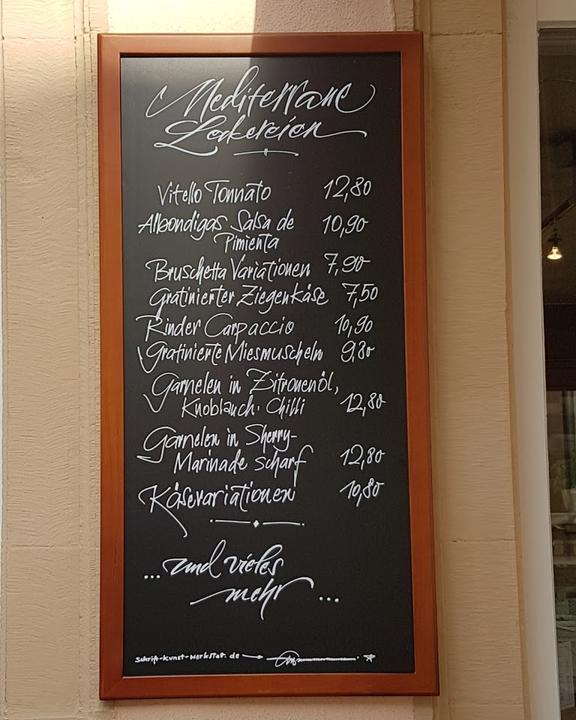 Mediterrane
Leckereien
Vitello Tonnato 12,80
Albondigas Salsa de
Pimienta 10,90
Bruschetta Variationen 7,90
Gratinierter Ziegenkäse 7,50
Rinder Carpaccio 10,90
Gratinierte Miesmuscheln 9,80
Garnelen in Zitronenöl,
Knoblauch · Chilli 12,80
Garnelen in Sherry-
Marinade scharf 12,80
Käsevariationen 10,80
...und vieles
mehr...
schrift-kunst-werkstat.de